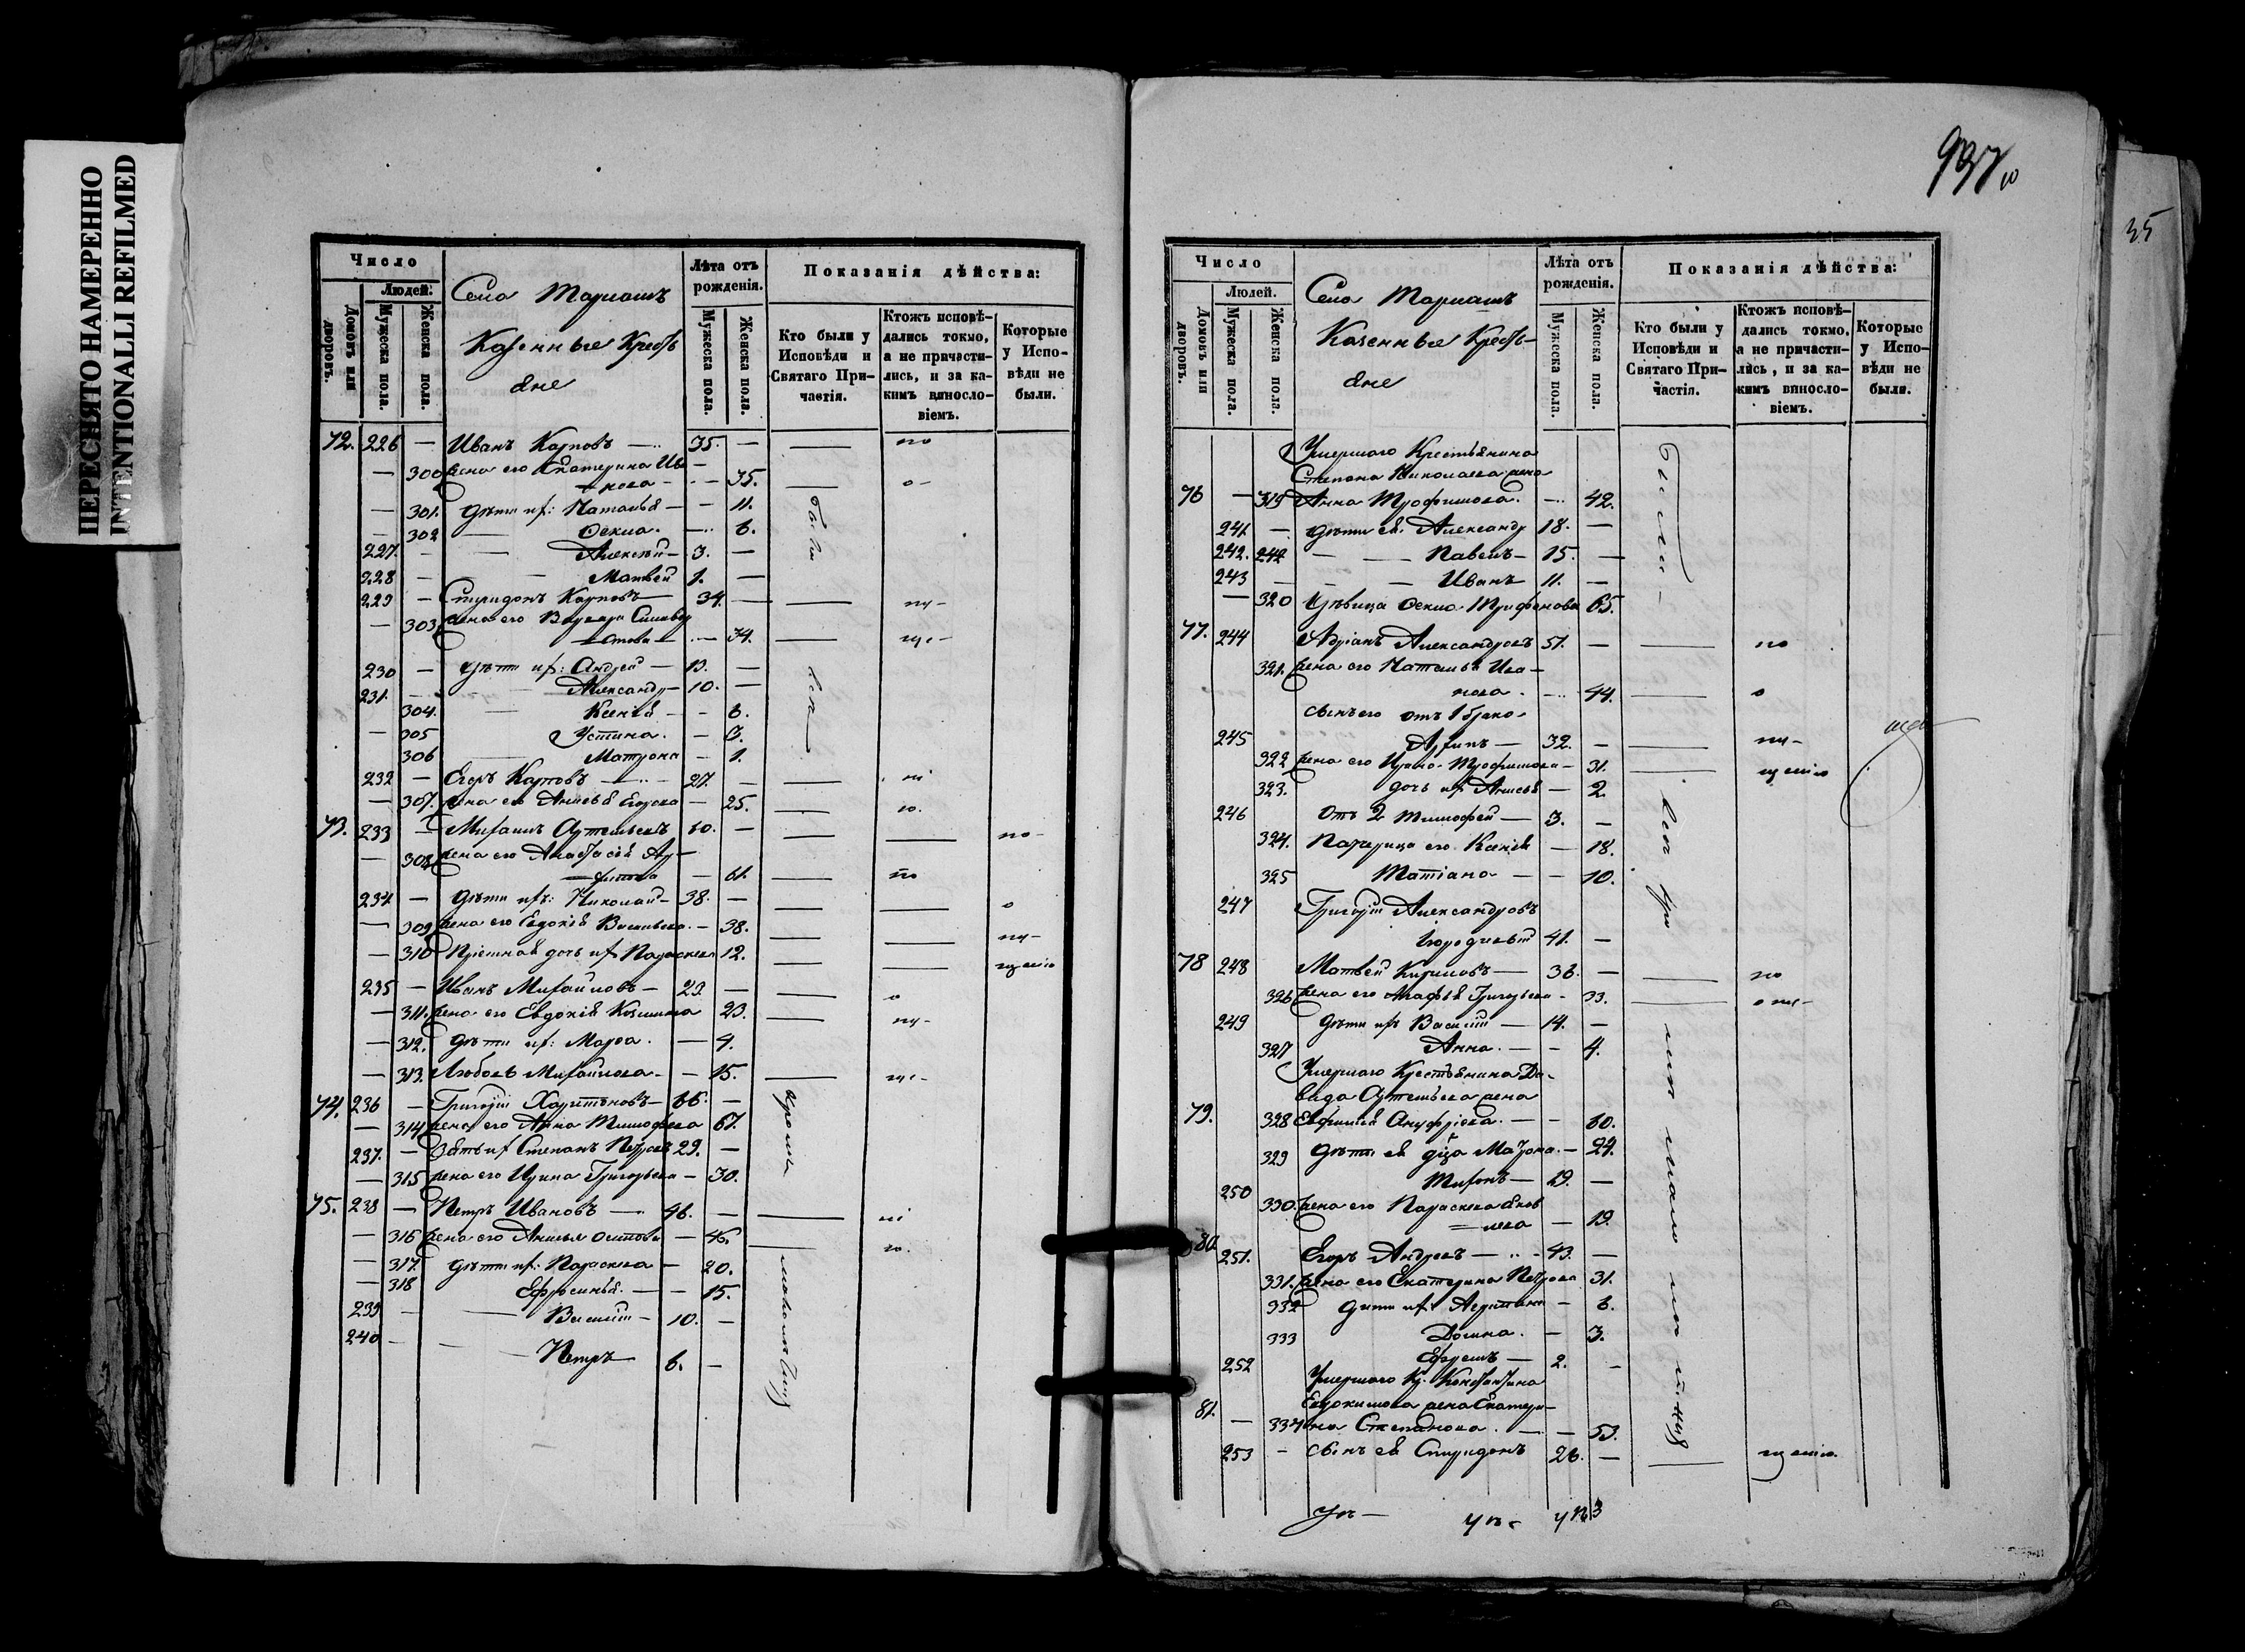 ПЕРЕСНЯТО НАМЕРЕННО
INTENTIONALLI REFILMED
Число
Людей.
Домовъ или дворовъ.
Мужеска пола.
Женска пола.
Село Тармашъ
Казенные Кресть
яне
Лѣта отъ рожденія.
Мужеска пола.
Женска пола.
Показанія дѣйства:
Кто были у Исповѣди и Святаго Причастія.
Ктожъ исповѣдались токмо, а не причастились, и за какимъ винословіемъ.
Которые у Исповѣди не были.
72. 226 — Иванъ Карповъ — 35. —
— 300 жена его Екатерина Ива
нова — 35.
— 301. дѣти их: Наталья — 11.
— 302 Ѳекла. — 6.
227. — Алексѣй — 3. —
228 — Матвей 1. —
229 — Спиридонъ Карповъ 34. —
— 303 жена его Варвара
— 34.
230 — дѣти их: Андрей — 13. —
231. — Александр — 10. —
304. Ксенія — 6.
— 305 Устина. — 3.
306 Матрона — 1.
232 — Егоръ Карповъ — 27. —
— 307. жена его Анисья Егорова — 25.
73. 233 — Михаилъ Артемьевъ 60. —
— 308 жена его Анастасія Ар-
— 61.
234 — дѣти ихъ: Николай — 38. —
— 309 жена его Евдокія Васильева. — 38.
— 310 Пріемная дочь их Параскева 12.
235 — Иванъ Михайловъ — 23. —
— 311. жена его Евдокія Козмина 23.
— 312. дѣти их: Марѳа. — 4.
— 313. Любовь Михайлова — 15.
74. 236 — Григорій Харитоновъ — 66. —
— 314 жена его Анна Тимофеева 67.
237. — Зять их Степанъ Петровъ 29. —
— 315 жена его Ирина Григорьева — 30.
75. 238 — Петръ Ивановъ — 46. —
— 316 жена его Анисья Осипова — 46.
— 317. дѣти их: Параскева — 20.
— 318 Ефросинья. — 15.
239 — Василій — 10. —
240 — Петръ 6. —
937
35
Число
Людей.
Домовъ или дворовъ.
Мужеска пола.
Женска пола.
Село Тармашъ
Казенные Кресть-
яне
Лѣта отъ рожденія.
Мужеска пола.
Женска пола.
Показанія дѣйства:
Кто были у Исповѣди и Святаго Причастія.
Ктожъ исповѣдались токмо, а не причастились, и за какимъ винословіемъ.
Которые у Исповѣди не были.
Умершаго Крестьянина
Степана Николаева жена
76 — 319 Анна Трофимова. — 42.
241 — дѣти ея: Александр 18. —
242. 242 — Павелъ — 15. —
243 — Иванъ 11. —
— 320 Ѳекла Трифонова 65.
77. 244 Адріанъ Александровъ 51. —
321. жена его Наталья Ива-
нова. — 44.
сынъ его отъ 1 брака
245 Архипъ — 32. —
322 жена его Ирина Трофимова — 31.
323. дочь их Анисья — 2.
246 отъ 2 Тимофей — 3. —
324. Падчерица его Ксенія — 18.
325 Татіана — 10.
247 Григорій Александровъ
41. —
78 248 Матвей Кириловъ — 36. —
326 жена его Агафья Григорьева — 33.
249 дѣти ихъ Василій — 14. —
327 Анна. — 4.
Умершаго Крестьянина Да-
вида Артемьева жена
79. 328 Евфимія Ануфріева. — 60.
329 дѣти ея дѣвица Матрона — 24.
250 Тихонъ — 19. —
330. жена его Параскева Яков
лева — 19.
80. 251. Егоръ Андреевъ — 43. —
331. жена его Екатерина Петрова 31.
332 дѣти их: — 6.
333 Домна. — 3.
252 Ефремъ — 2. —
Умершаго Кр. Константина
Евдокимова жена Екатери-
81. — 334 на Степанова. — 53.
253 — сынъ ея Спиридонъ 26. —